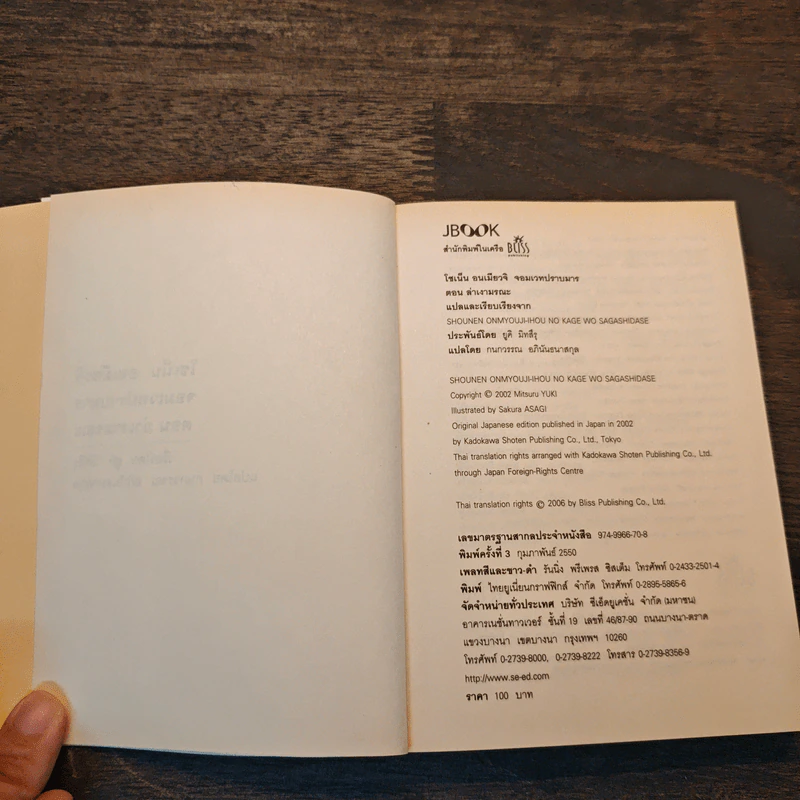 JBOOK
สำนักพิมพ์ในเครือ BLISS publishing
โชเน็น อนเมียวจิ จอมเวทปราบมาร
ตอน ล่าเงามรณะ
แปลและเรียบเรียงจาก
SHOUNEN ONMYOUJI-IHOU NO KAGE WO SAGASHIDASE
ประพันธ์โดย ยูคิ มิทสึรุ
แปลโดย กนกวรรณ อภินันธนาสกุล
SHOUNEN ONMYOUJI-IHOU NO KAGE WO SAGASHIDASE
Copyright © 2002 Mitsuru YUKI
Illustrated by Sakura ASAGI
Original Japanese edition published in Japan in 2002
by Kadokawa Shoten Publishing Co., Ltd., Tokyo
Thai translation rights arranged with Kadokawa Shoten Publishing Co., Ltd.
through Japan Foreign-Rights Centre
Thai translation rights © 2006 by Bliss Publishing Co., Ltd.
เลขมาตรฐานสากลประจำหนังสือ 974-9966-70-8
พิมพ์ครั้งที่ 3 กุมภาพันธ์ 2550
เพลทสีและขาว-ดำ รันนิ่ง พรีเพรส ซิสเต็ม โทรศัพท์ 0-2433-2501-4
พิมพ์ ไทยยูเนี่ยนกราฟฟิกส์ จำกัด โทรศัพท์ 0-2895-5865-6
จัดจำหน่ายทั่วประเทศ บริษัท ซีเอ็ดยูเคชั่น จำกัด (มหาชน)
อาคารเนชั่นทาวเวอร์ ชั้นที่ 19 เลขที่ 46/87-90 ถนนบางนา-ตราด
แขวงบางนา เขตบางนา กรุงเทพฯ 10260
โทรศัพท์ 0-2739-8000, 0-2739-8222 โทรสาร 0-2739-8356-9
http://www.se-ed.com
ราคา 100 บาท